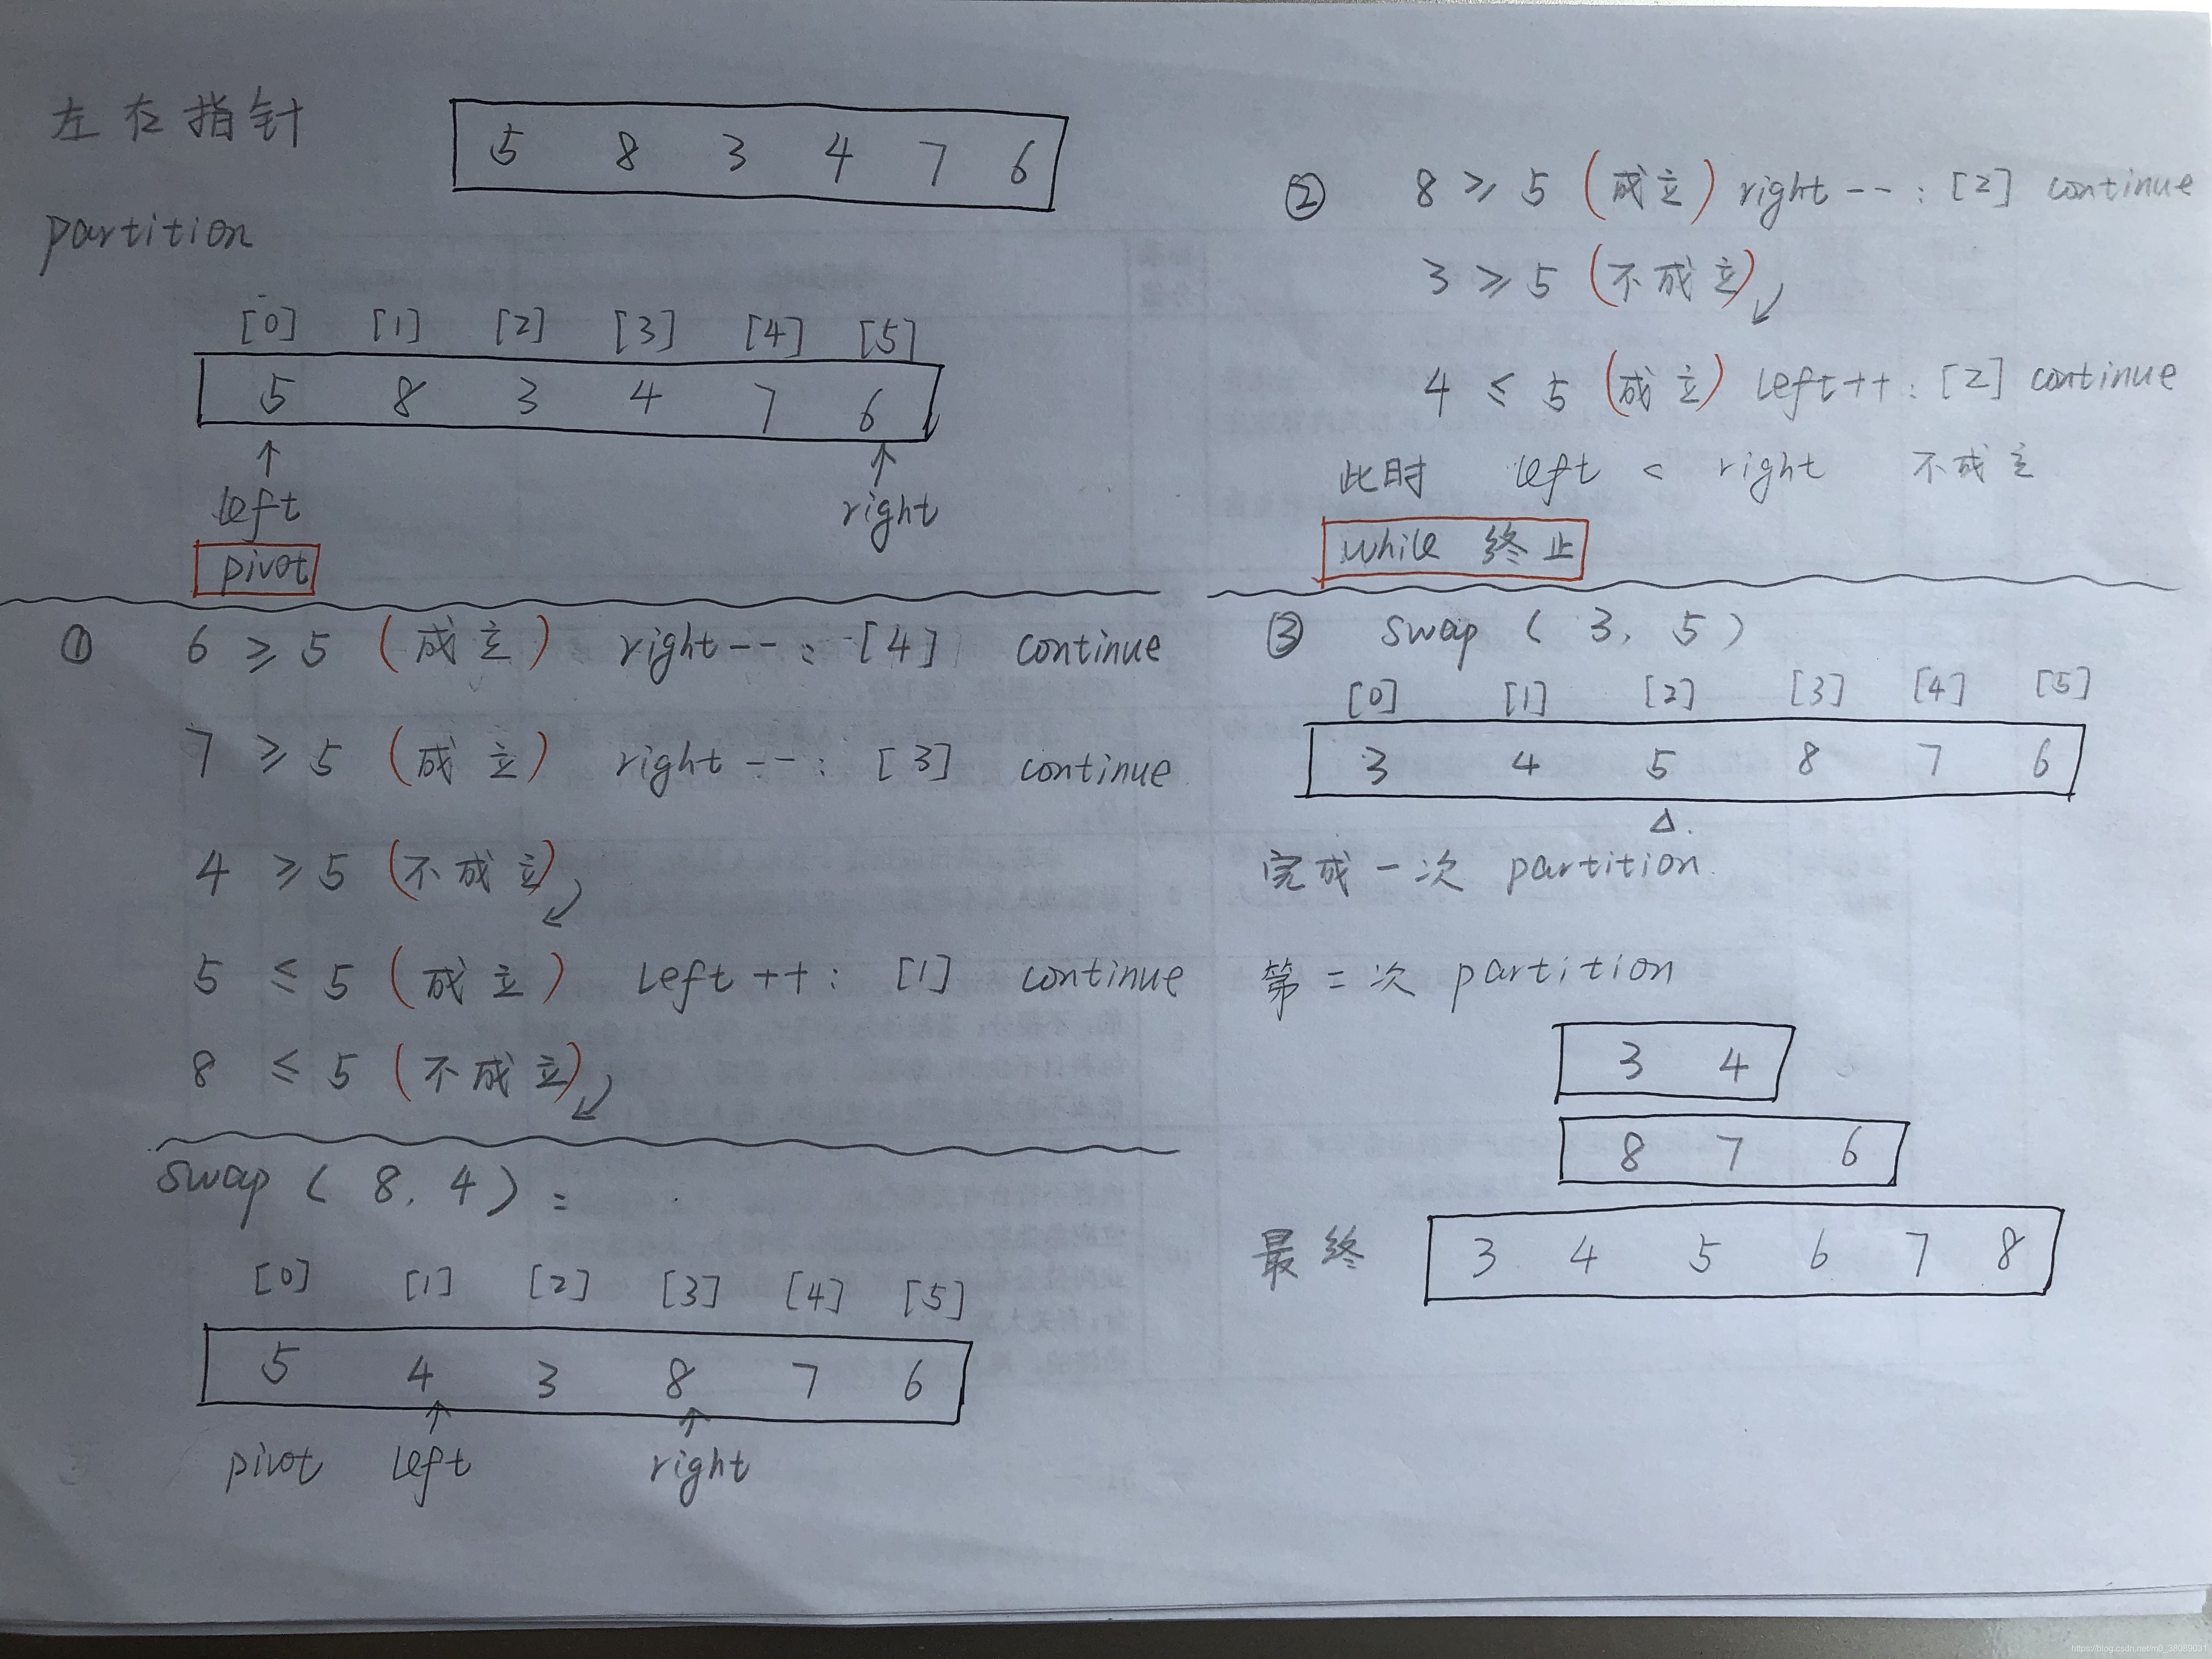 左右指针
5 8 3 4 7 6
partition
[0] [1] [2] [3] [4] [5]
5 8 3 4 7 6
↑ ↑
left right
pivot
① 6 ≥ 5 (成立) right-- : [4] continue
7 ≥ 5 (成立) right-- : [3] continue
4 ≥ 5 (不成立)
5 ≤ 5 (成立) left++ : [1] continue
8 ≤ 5 (不成立)
swap ( 8, 4 ) :
[0] [1] [2] [3] [4] [5]
5 4 3 8 7 6
↑ ↑
pivot left right
② 8 ≥ 5 (成立) right-- : [2] continue
3 ≥ 5 (不成立)
4 ≤ 5 (成立) left++ : [2] continue
此时 left < right 不成立
while 终止
③ swap ( 3, 5 )
[0] [1] [2] [3] [4] [5]
3 4 5 8 7 6
△.
完成一次 partition.
第二次 partition
3 4
8 7 6
最终 3 4 5 6 7 8
https://blog.csdn.net/m0_38069031